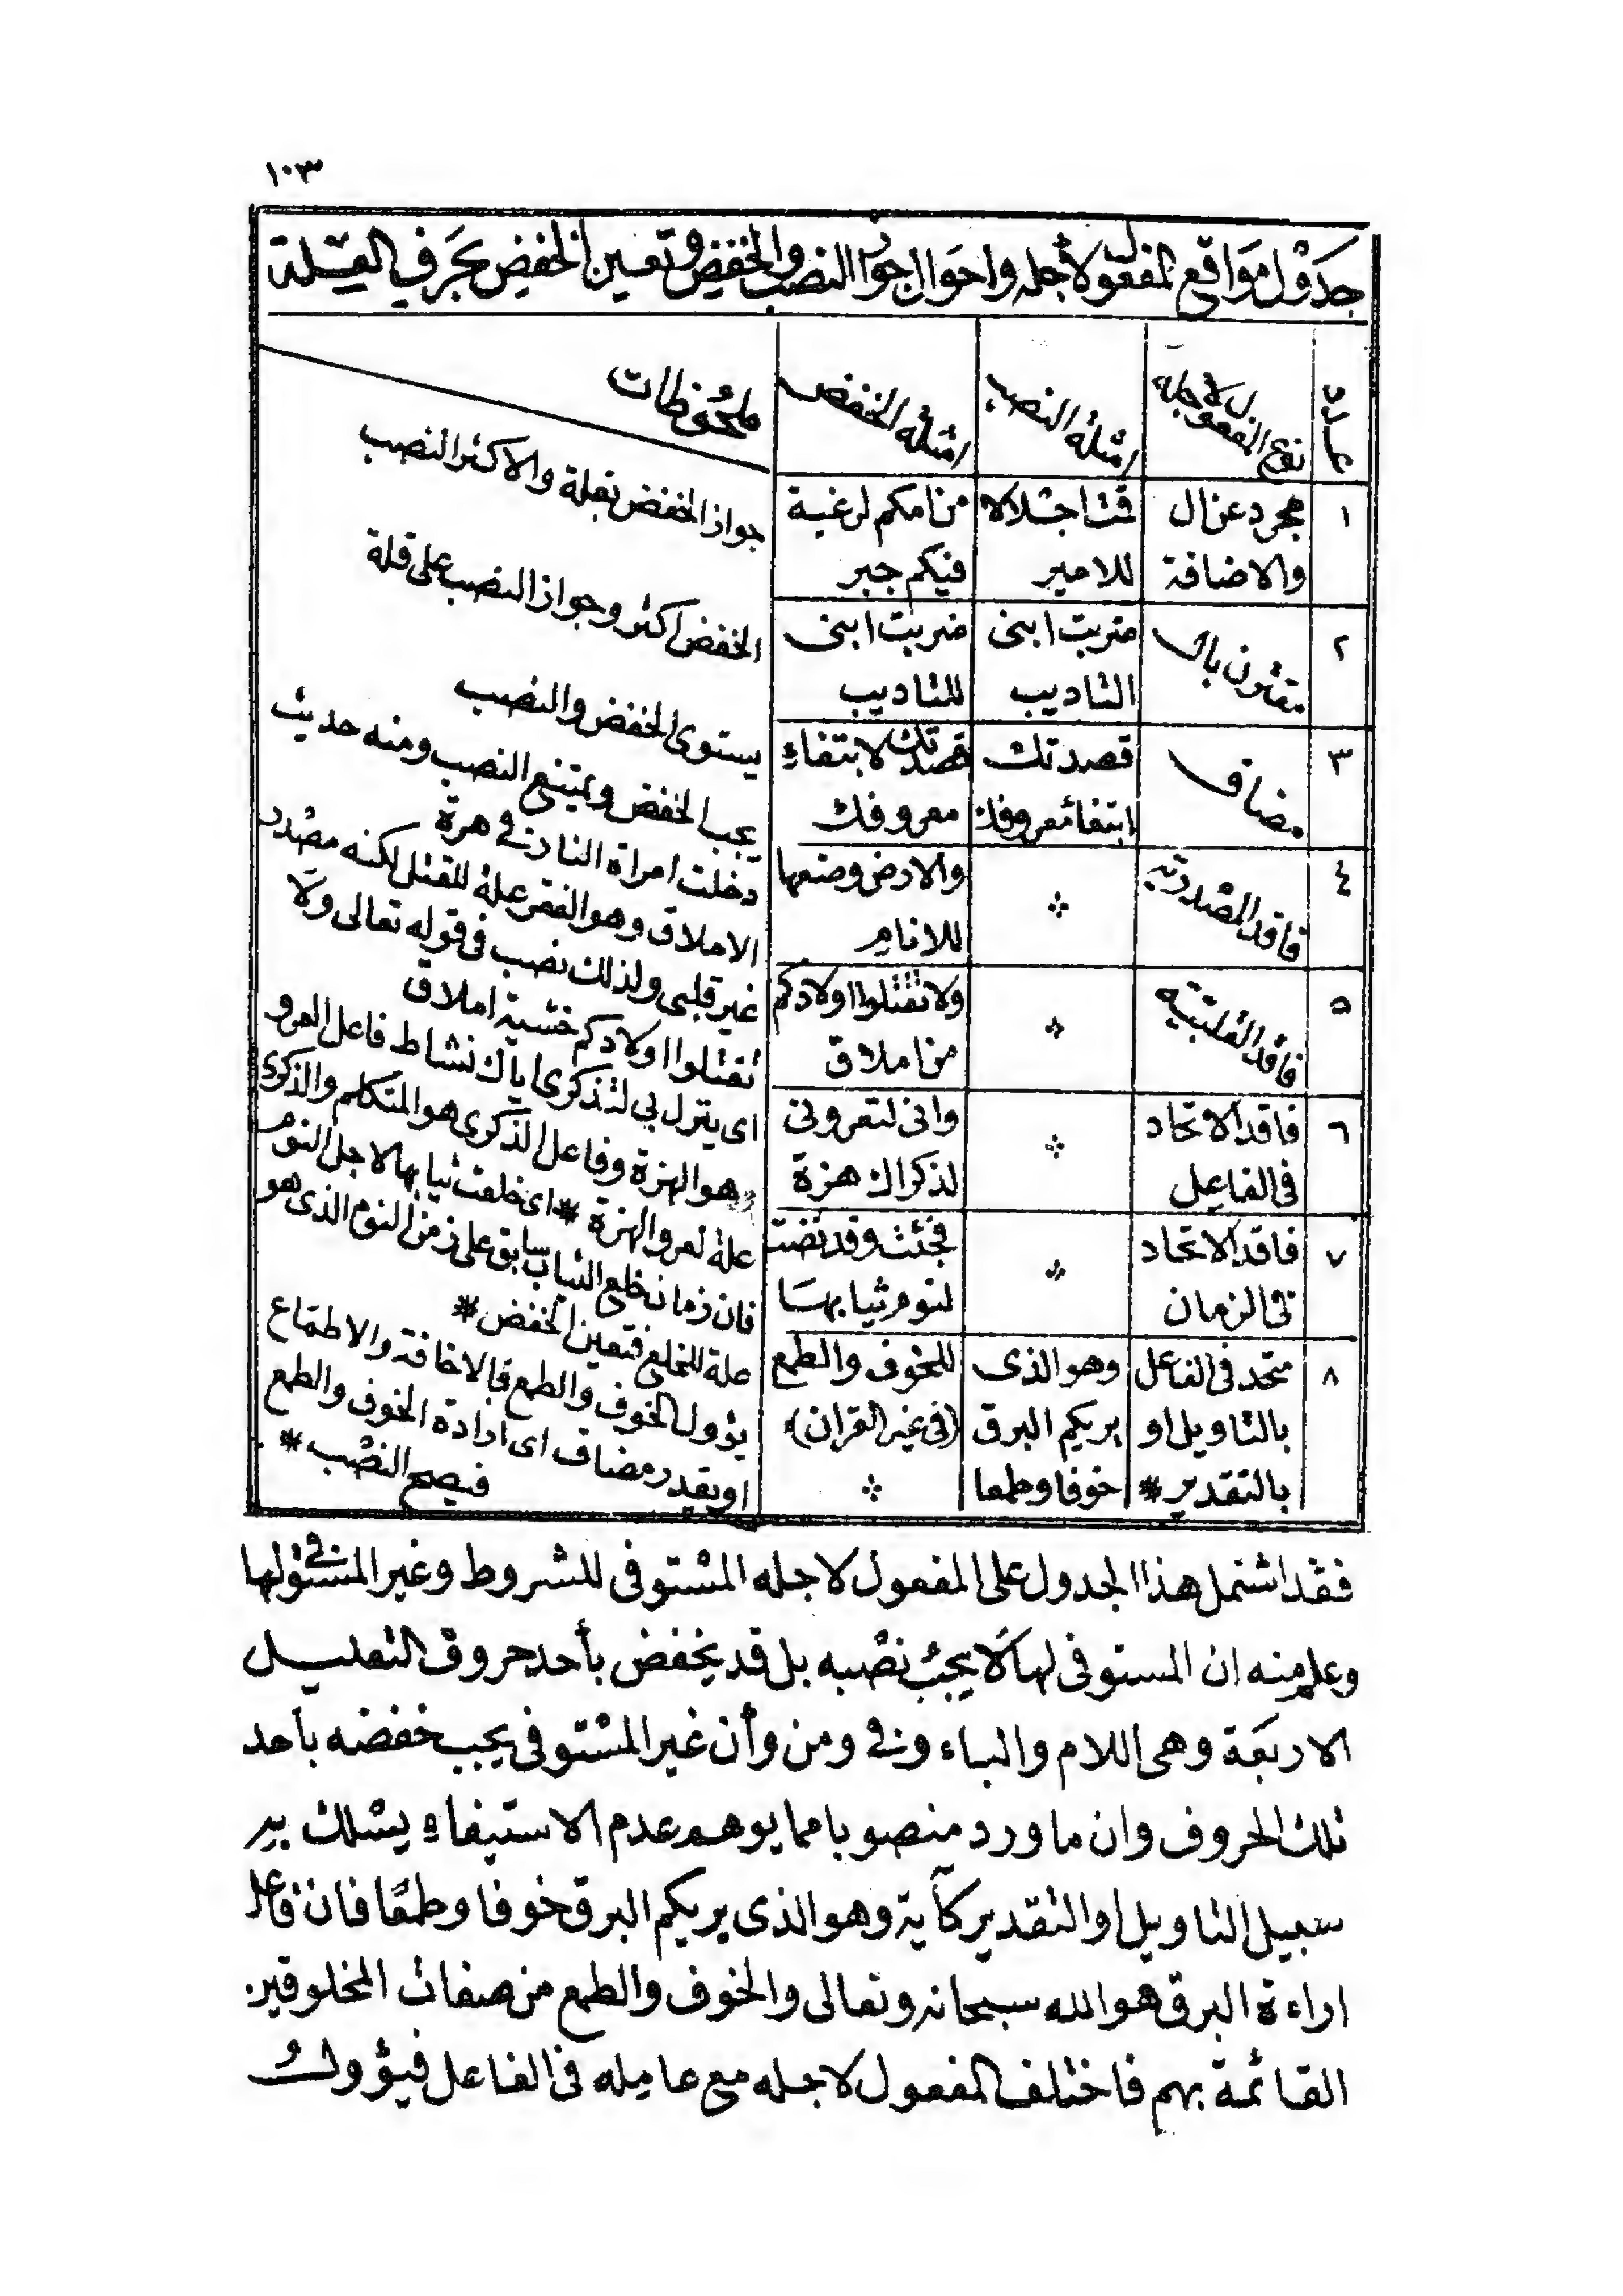 ١٠٣
جدول مواقع المفعول لاجله واحوال جواز النصب والخفض وتعيين الخفض بحرف العلة
عدد
نوع المفعول لاجله
امثلة النصب
امثلة الخفض
ملحوظات
١
مجرد عن ال
والاضافة
قمت اجلالا
للامير
من امكم لرغبة
فيكم جبر
جواز الخفض بقلة والاكثر النصب
٢
مقرون بال
ضربت ابنى
التاديب
ضربت ابنى
للتاديب
الخفض اكثر وجواز النصب على قلة
٣
مضاف
قصدتك
ابتغاء معروفك
قصدتك لابتغاء
معروفك
يستوى الخفض والنصب
٤
فاقد المصدرية
⁘
والارض وضعها
للانام
يجب الخفض ويمتنع النصب ومنه حديث
دخلت امراة النار فى هرة
٥
فاقد القلبية
⁘
ولا تقتلوا اولادكم
من املاق
الاملاق وهو الفقر علة للقتل لكنه مصدر
غير قلبى ولذلك نصب فى قوله تعالى ولا
تقتلوا اولادكم خشية املاق
٦
فاقد الاتحاد
فى الفاعل
⁘
وانى لتعرونى
لذكراك هزة
اى ينزل بي لتذكرى اياك نشاط فاعل العرو
هو الهزة وفاعل الذكرى هو المتكلم والذكرى
علة لعرو الهزة * اى خلعت ثيابها لاجل النوم
٧
فاقد الاتحاد
فى الزمان
⁘
فجئت وقد نضت
لنوم ثيابها
فان زمان خلع الثياب سابق على زمن النوم الذى هو
علة للخلع فتعين الخفض *
٨
متحد فى الفاعل
بالتاويل او
بالتقدير *
وهو الذى
يريكم البرق
خوفا وطمعا
للخوف والطمع
(فى غير القران)
⁘
يؤول الخوف والطمع بالاخافة والاطماع
او يقدر مضاف اى ارادة الخوف والطمع
فيصح النصب *
فقد اشتمل هذا الجدول على المفعول لاجله المستوفى للشروط وغير المستوفى لها
وعلم منه ان المستوفى لها لا يجب نصبه بل قد يخفض بأحد حروف التعليل
الاربعة وهى اللام والباء وفى ومن وأن غير المستوفى يجب خفضه بأحد
تلك الحروف وان ما ورد منصوبا مما يوهم عدم الاستيفاء يسلك به
سبيل التاويل او التقدير كآية وهو الذى يريكم البرق خوفا وطمعا فان فاعل
اراءة البرق هو الله سبحانه وتعالى والخوف والطمع من صفات المخلوقين
القائمة بهم فاختلف المفعول لاجله مع عامله فى الفاعل فيؤول